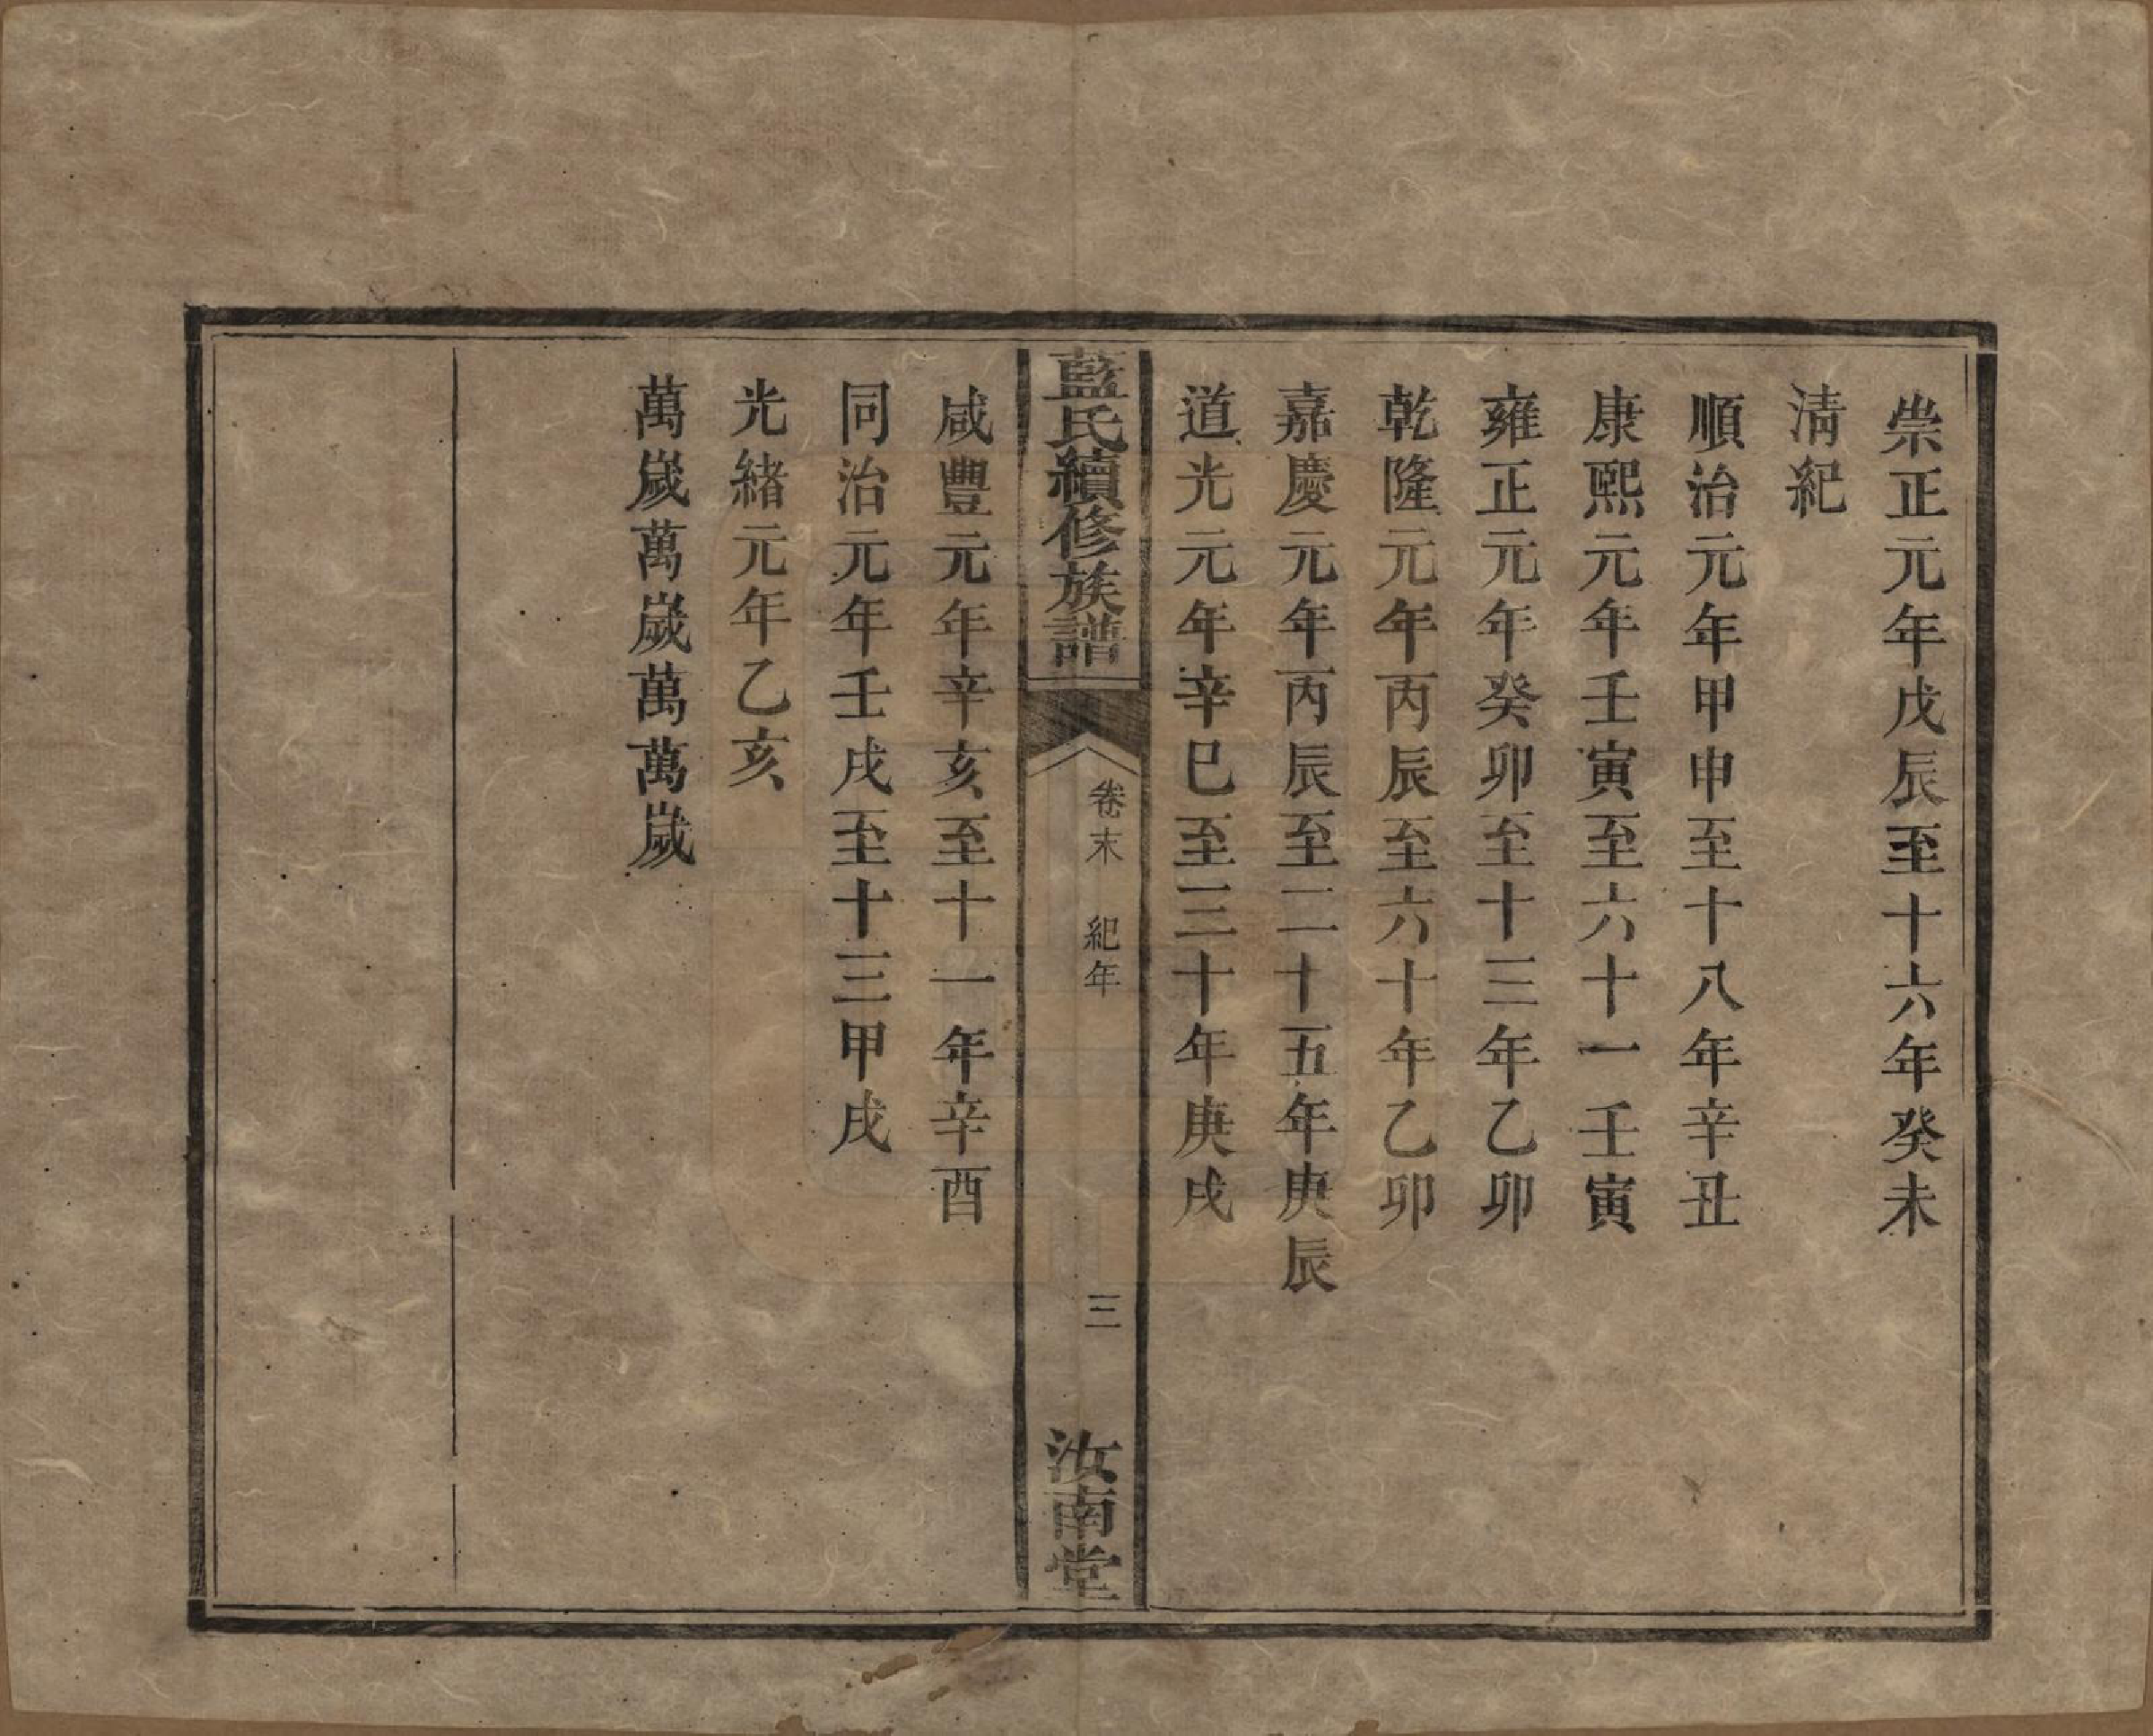 崇正元年戊辰至十六年癸未
淸紀
順治元年甲申至十八年辛丑
康熙元年壬寅至六十一壬寅
雍正元年癸卯至十三年乙卯
乾隆元年丙辰至六十年乙卯
嘉慶元年丙辰至二十五年庚辰
道光元年辛巳至三十年庚戌
藍氏續修族譜
卷末 紀年
三
汝南堂
咸豐元年辛亥至十一年辛酉
同治元年壬戌至十三甲戌
光緒元年乙亥
萬嵗萬嵗萬萬嵗